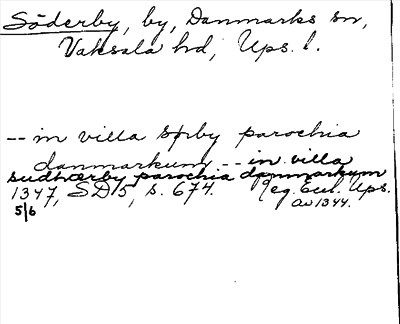 Söderby, by, Danmarks sn,
Vaksala hd, Ups. l.
-- in villa sþrby parochia
danmarkum -- in villa
sudhærby parochia danmarkum
1347, SD 5, s. 674. Reg. Eccl. Ups.
5/6 av 1344.